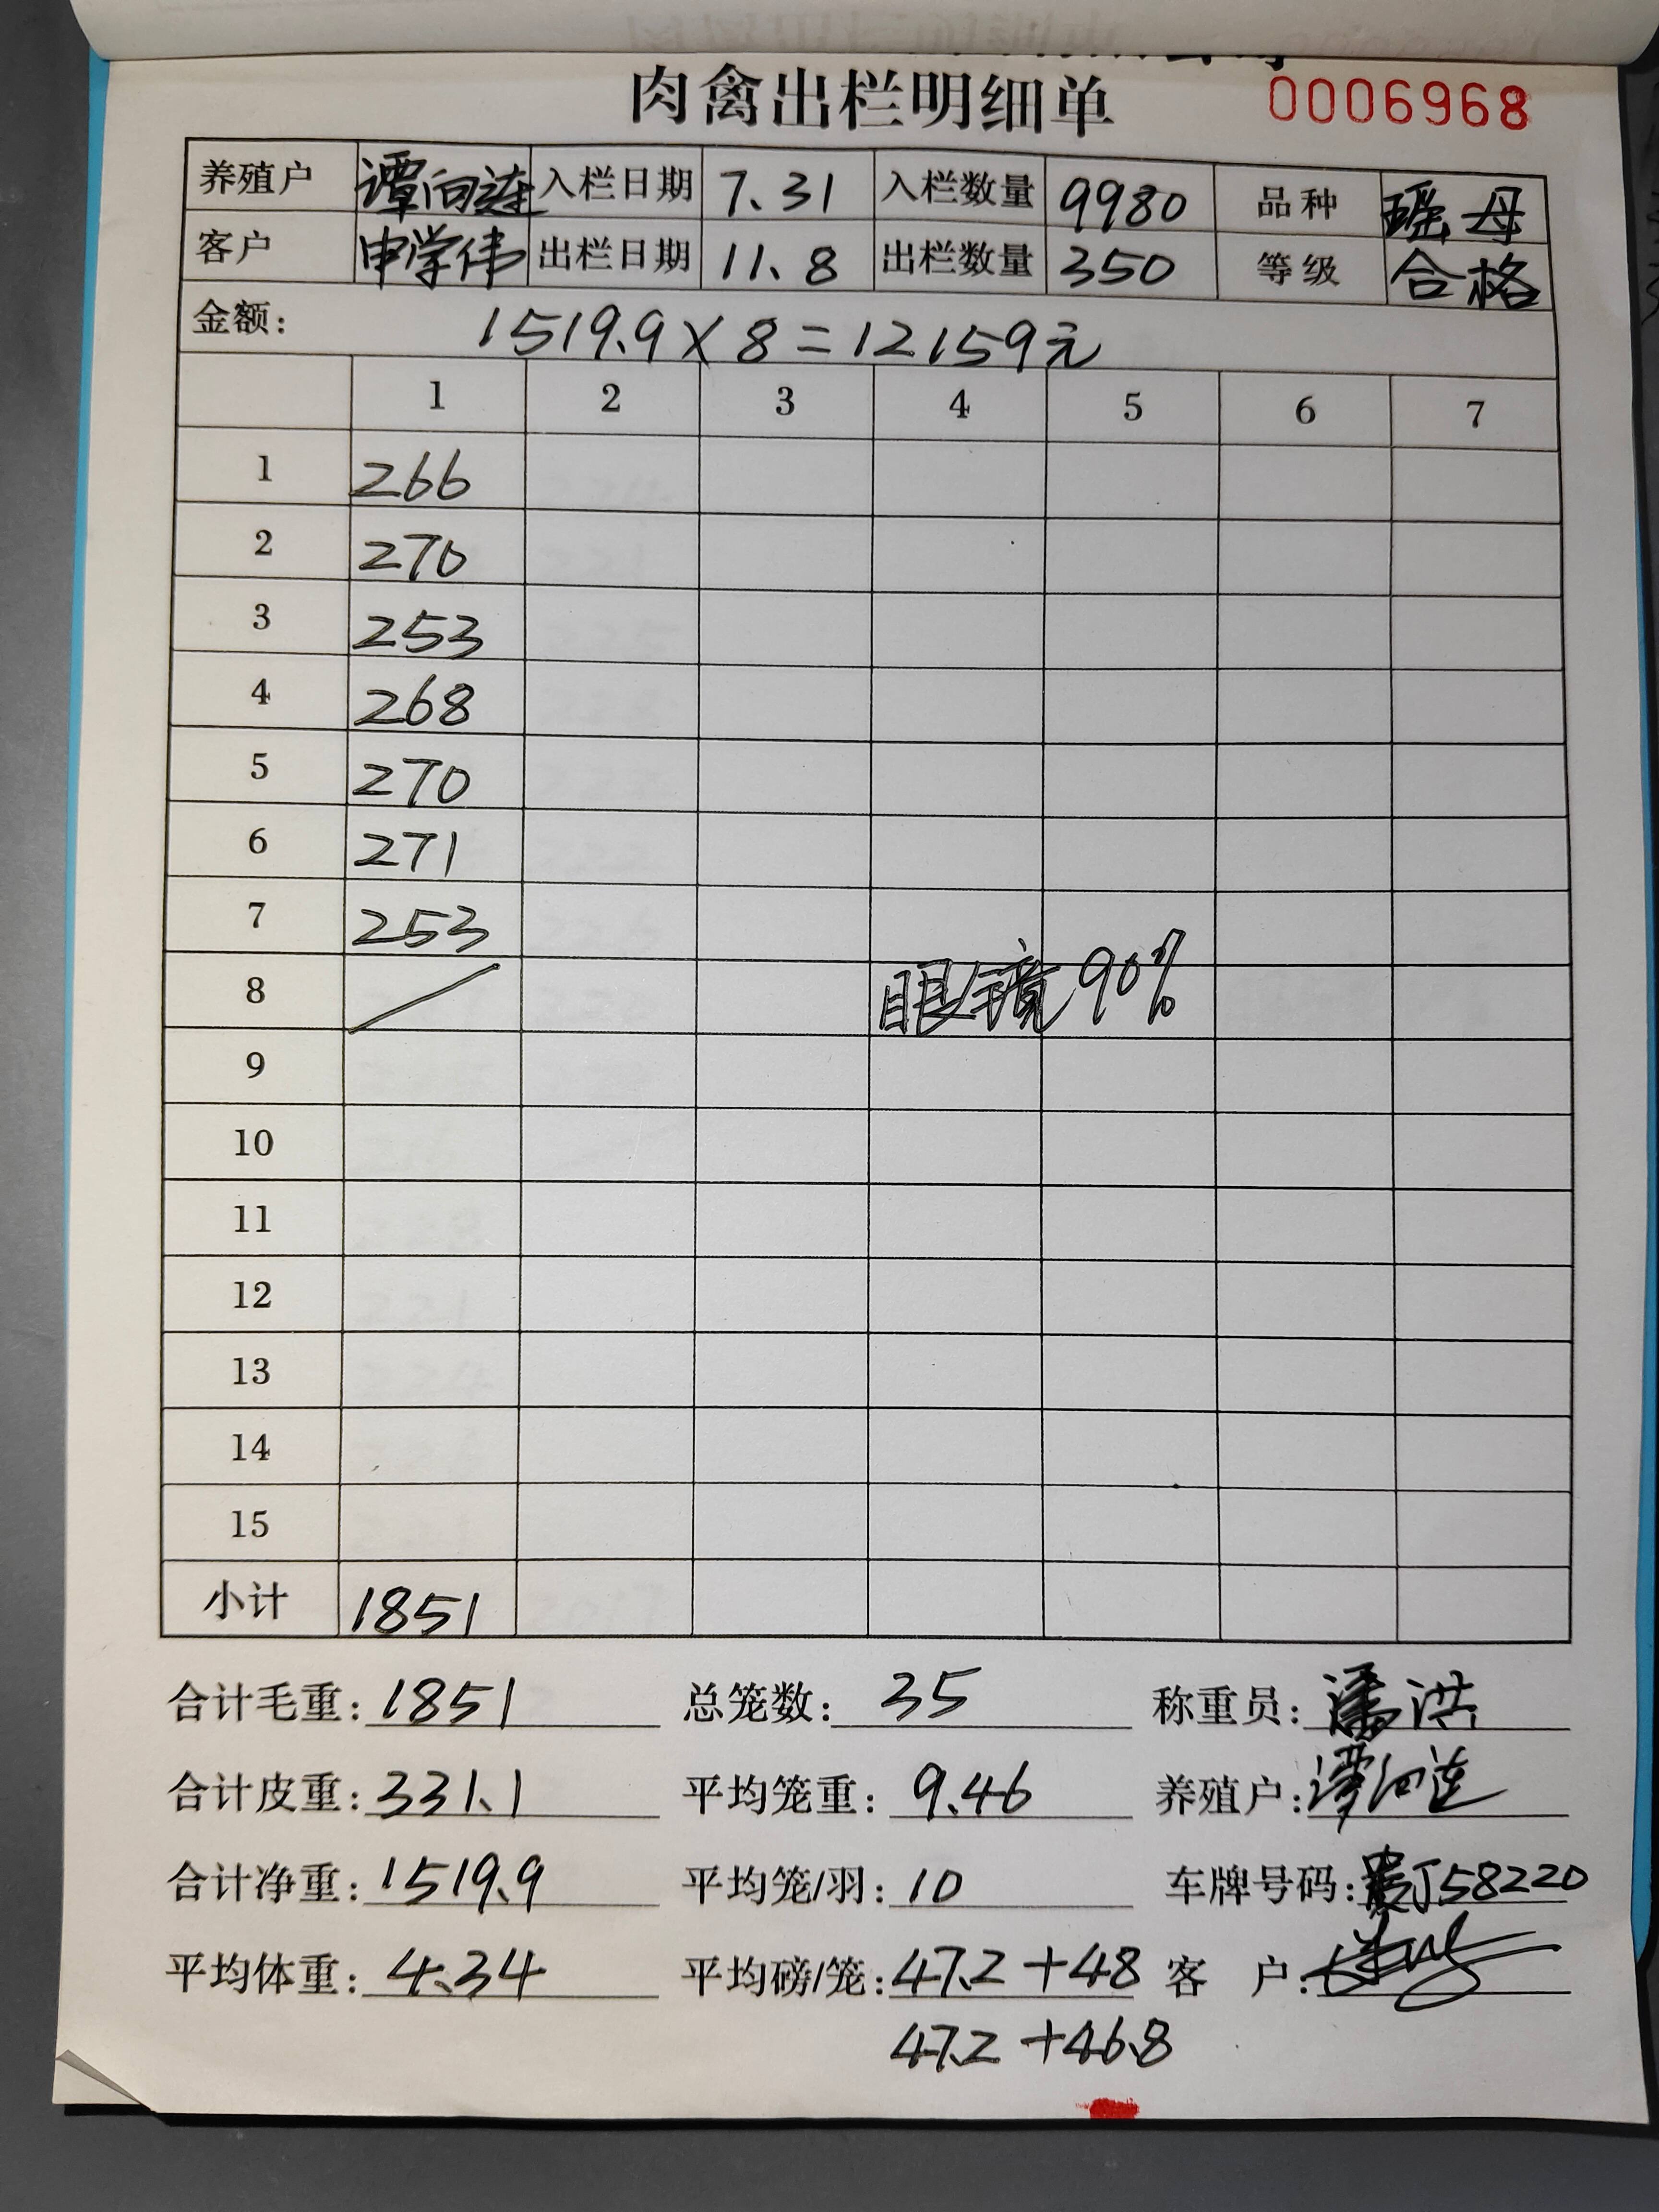 肉禽出栏明细单 0006968
养殖户 谭向连 入栏日期 7.31 入栏数量 9980 品种 瑶母
客户 申学伟 出栏日期 11.8 出栏数量 350 等级 合格
金额: 1519.9×8=12159元
1 2 3 4 5 6 7
1 266
2 270
3 253
4 268
5 270
6 271
7 253
8 / 眼镜90%
9
10
11
12
13
14
15
小计 1851
合计毛重: 1851 总笼数: 35 称重员: 潘洪
合计皮重: 331.1 平均笼重: 9.46 养殖户: 谭向连
合计净重: 1519.9 平均笼/羽: 10 车牌号码: J58220
平均体重: 4.34 平均磅/笼: 47.2+48 客 户:
47.2+46.8